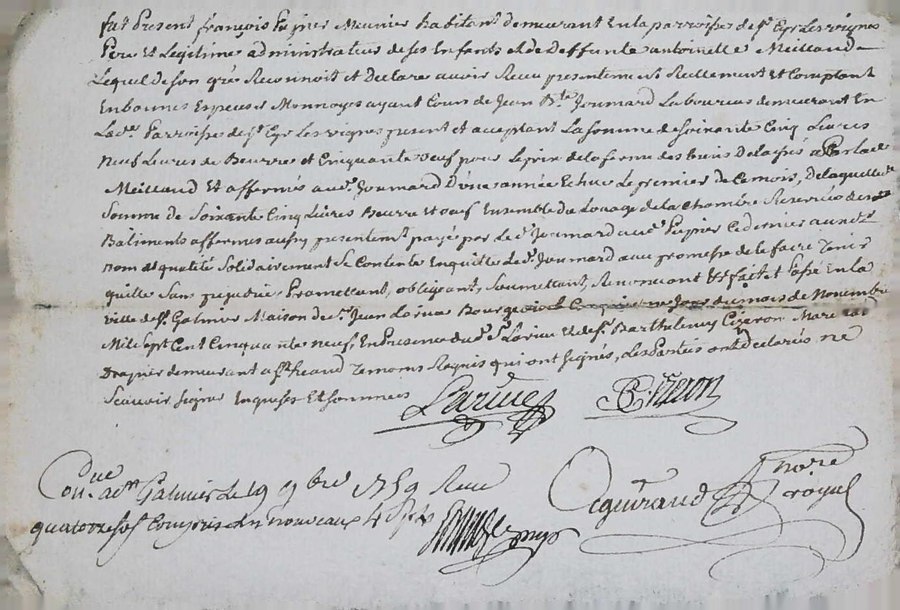 fut Present françois Pupier Meunier habitant demeurant En la parroisse de St Cyr Les vignes
Pere Et Legitime administrateur de ses Enfants et de deffunte antoinette Meilland
Lequel de son gré a Reconnoit et declare avoir Receu presentement Reellement et Comptant
En bonnes Especes et Monnoyes ayant Cours de Jean Bte Joumard Laboureur demeurant En
Lade Parroisse de St Cyr Les vignes present et acceptant La somme de soixante Cinq Livres
neuf Livres de Beurre et Cinquante oeuf pour Le prix de la ferme des biens delaissés a
Meilland Et affermés aud. Joumard D'une année Echue Le premier de Ce mois, de laquelle de
Somme de Soixante Cinq Livres Beurre et oeuf Ensemble du Louage de la Chambre Reservée des
Batiments affermés aussy presentemt payée par Led. Joumard aud. Pupier Ce dernier auxds
nom et qualité Solidairement Se Contente En quitte Led. Joumard avec promesse de le faire tenir
quitte sans prejudice, Promettant, obligeant, Soumettant, Renoncant Et fait et passé En la
ville de St Galmier Maison de Sr Jean Larue Bourgeois Le Cinquieme Jour du mois de Novembre
Mil Sept Cent Cinquante neuf, En Presence dud. Sr Larue Et de Sr Barthelemy Cizeron Marchand
Drapier demeurant a St heand temoins Requis qui ont signés, Les Parties ont declarés ne
Scavoir signer Enquises Et sommées
Larüe BCizeron
Conle a St Galmier Le 19 9bre 1759 Receu
quatorze sols Compris Les nouveaux 4 s. p. L.
Aguiraud nore royal